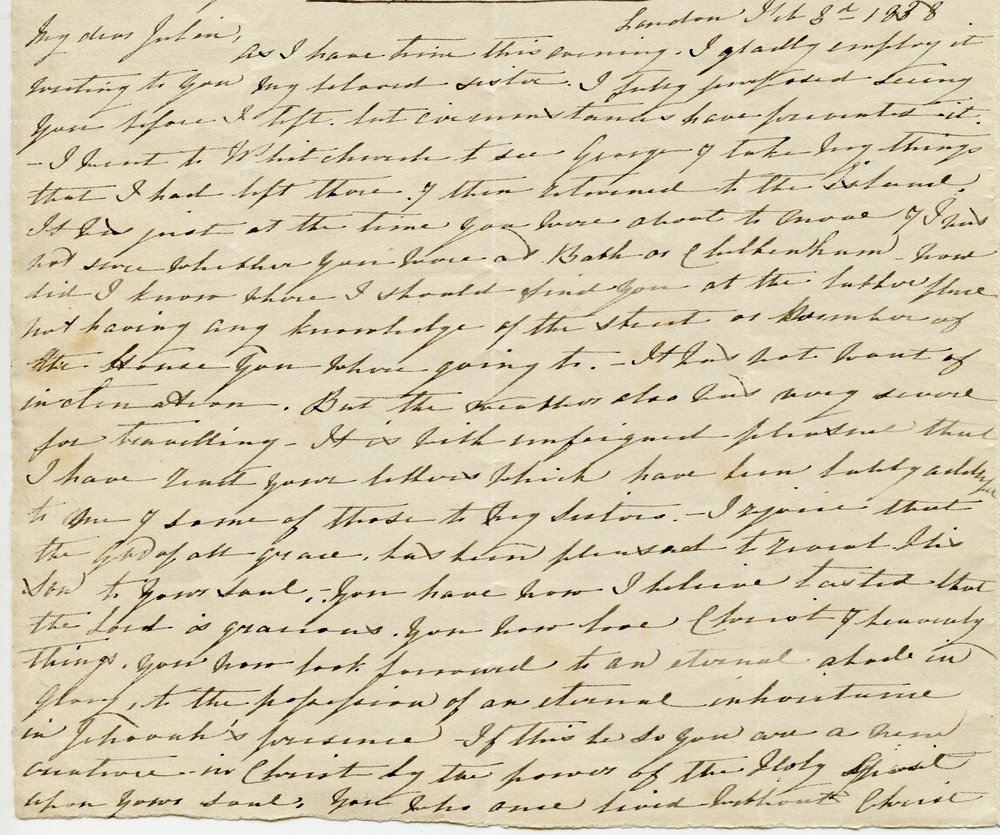 London Feb 3d 1838
My dear Julia,
as I have time this evening. I gladly employ it
writing to you my beloved sister. I fully purposed seeing
you before I left. but circumstances have prevented it.
- I went to Whitchurch to see George & take my things
that I had left there. & then returned to the Island.
It was just at the time you were about to move & I was
not sure whether you were at Bath or Cheltenham - nor
did I know where I should find you at the latter place
not having any knowledge of the street or number of
the House you where going to. - It was not want of
inclination. But the weather also was very severe
for travelling - It is with unfeigned pleasure that
I have read your letters which have been lately
to me & some of those to my sisters. - I rejoice that
the God of all grace, has been pleased to reveal His
Son to your soul, - You have now I believe tasted that
the Lord is gracious. You now love Christ & heavenly
things. You now look forward to an eternal abode in
Glory, to the possession of an eternal inheritance
in Jehovah's presence - If this be so you are a new
creature - in Christ by the power of the Holy Ghost
upon your soul, You who once lived without Christ